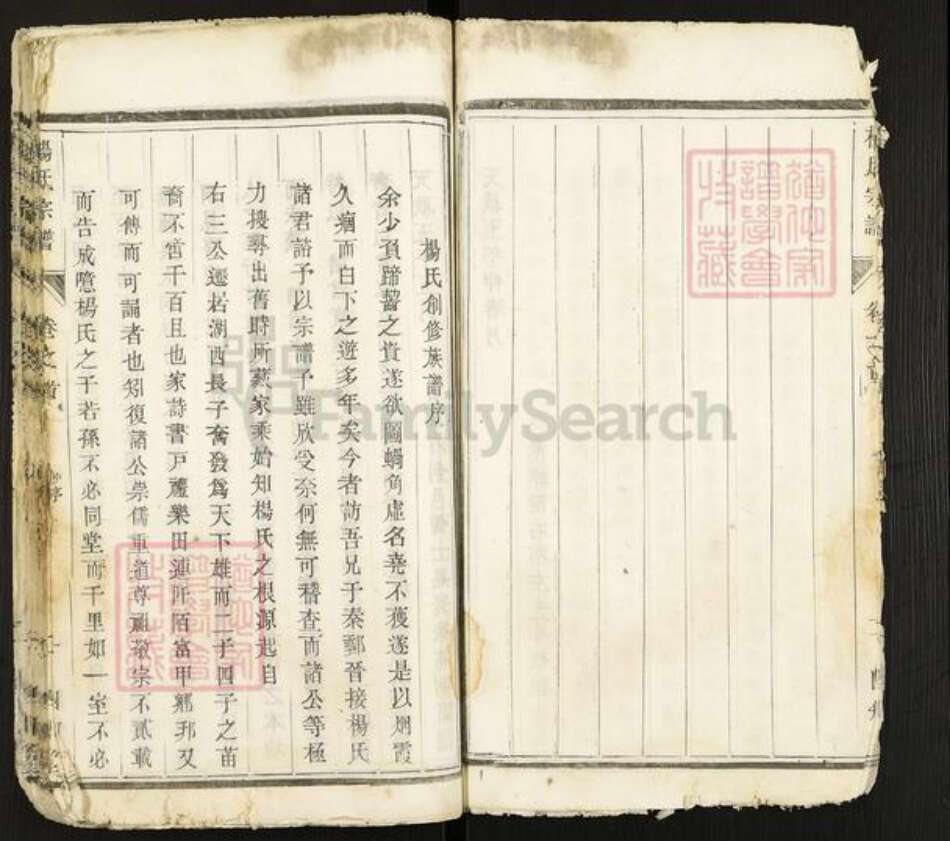 楊氏創修族譜序
余少負蹄齧之資遂欲圖蝸角虛名堯不獲遂是以烟霞
久痼而白下之遊多年矣今者訪吾兄于秦鄄晉接楊氏
諸君諮予以宗譜予雖欣受奈何無可稽查而諸公等極
力搜尋出舊時所藏家乘始知楊氏之根源起自
右三公遷若湖西長子奮發爲天下雄而二子四子之苗
裔不啻千百且也家詩書戸禮樂田連阡陌富甲鄉邦又
可傳而可誦者也矧復諸公崇儒重道尊祖敬宗不貳載
而告成噫楊氏之子若孫不必同堂而千里如一室不必
楊氏宗譜
卷之首
序
FamilySearch